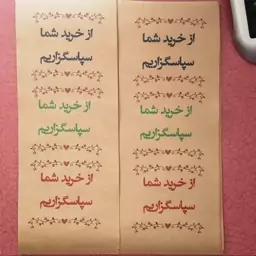 از خرید شما
سپاسگزاریم
از خرید شما
سپاسگزاریم
از خرید شما
سپاسگزاریم
از خرید شما
سپاسگزاریم
از خرید شما
سپاسگزاریم
از خرید شما
سپاسگزاریم